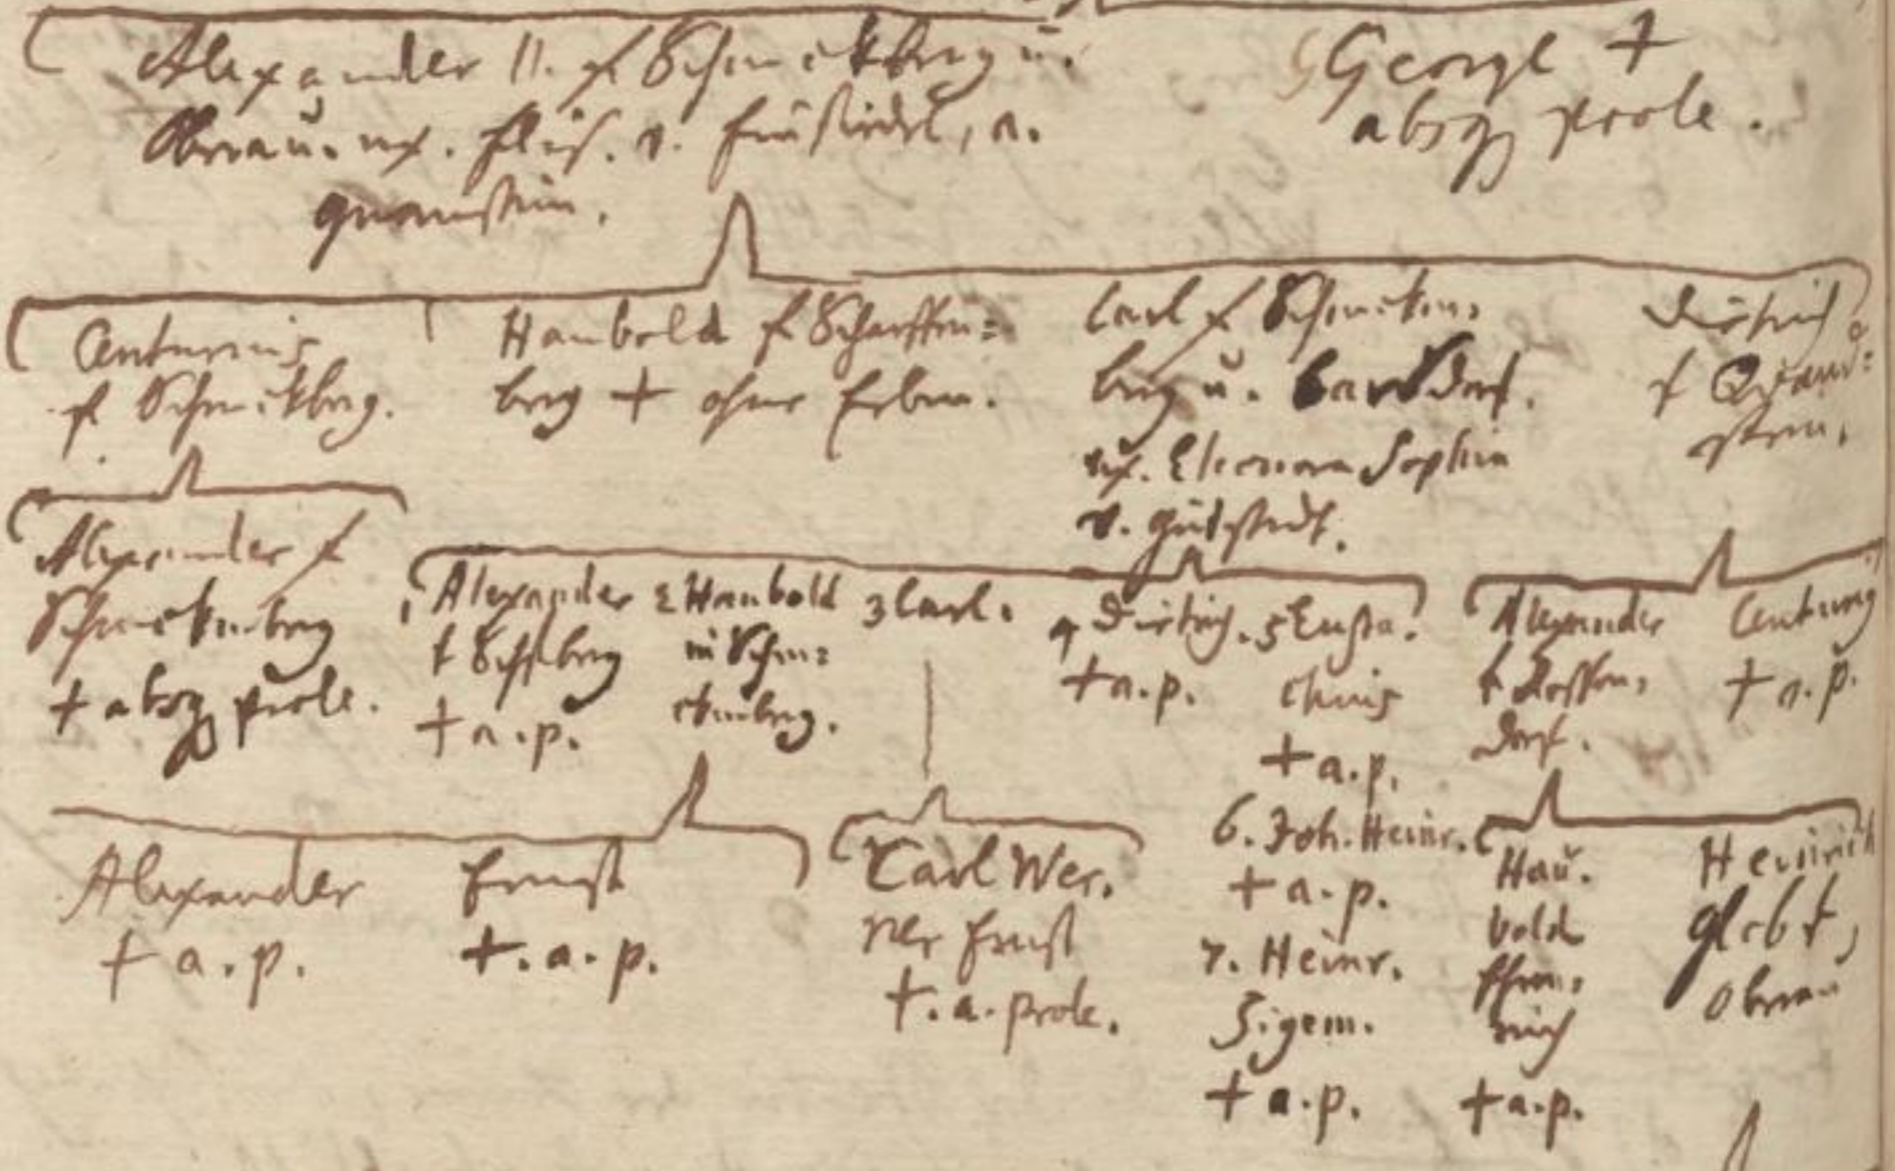 Alexander II. f Schmekberg u.
Obrau. ux. Elis. v. Einsiedel, a.
gnanstein.
George †
absq prole.
Centurius
f Schmekberg.
Haubold f Scharffen=
berg † ohne Erben.
Carl f Schmeken=
berg u. Barsdorf.
ux. Eleonora Sophia
v.
Dietrich
f
stein.
Alexander f
Schmekenberg
† absq prole.
1 Alexander
f Schfberg
† a. p.
2 Haubold
in Schme=
kenberg.
3 Carl.
4 Dietrich.
† a. p.
5 Eusta.
chius
† a. p.
6. Joh. Heinr.
† a. p.
7. Heinr.
Sigem.
† a. p.
Alexander
f
dorf.
Centurius
† a. p.
Alexander
† a. p.
Ernst
†. a. p.
Carl Wer.
ner Ernst
†. a. prole.
Hau.
bold
† a. p.
Heinrich
Obrau